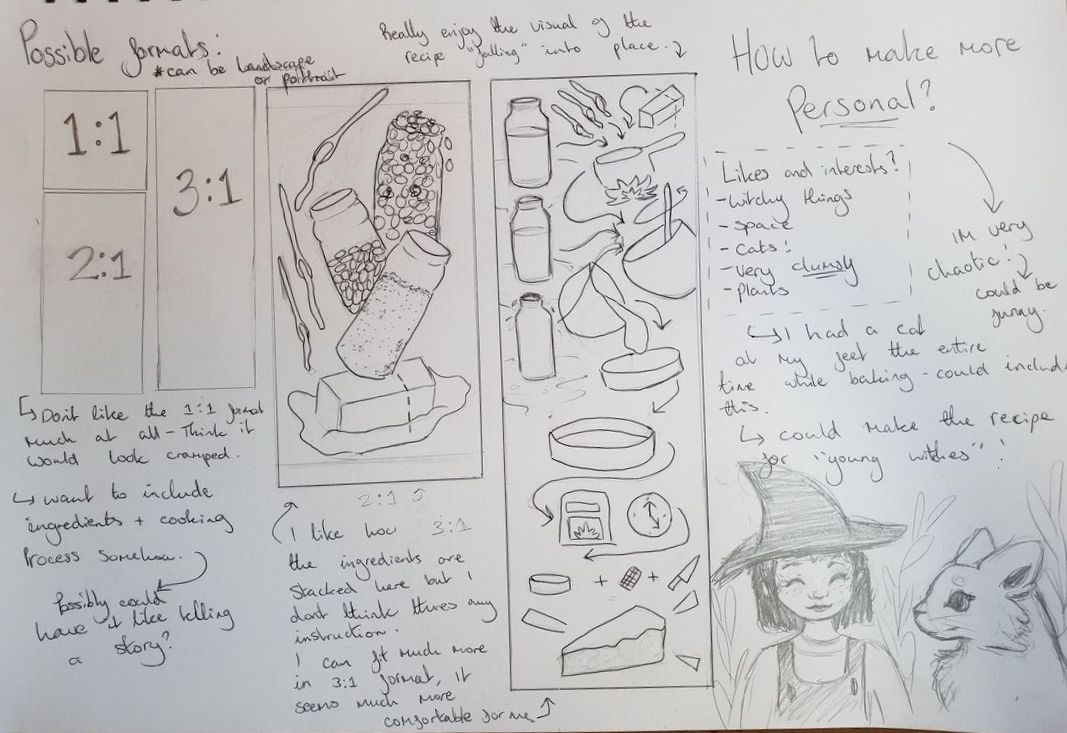 Possible formats:
*can be landscape
or portrait
1:1
2:1
3:1
↳ Don't like the 1:1 format
much at all - Think it
would look cramped.
↳ want to include
ingredients + cooking
Process somehow.
Possibly could
have it like telling
a story?
2:1
3:1
I like how
the ingredients are
stacked here but I
dont think theres any
instruction.
I can fit much more
in 3:1 format, it
seems much more
comfortable for me
Really enjoy the visual of the
recipe "falling" into place.
+ +
How to make more
Personal?
Likes and interests?
- witchy things
- space
- cats!
- very clumsy
- plants
im very
chaotic!
could be
funny.
↳ I had a cat
at my feet the entire
time while baking - could include
this.
↳ could make the recipe
for "young witches"!